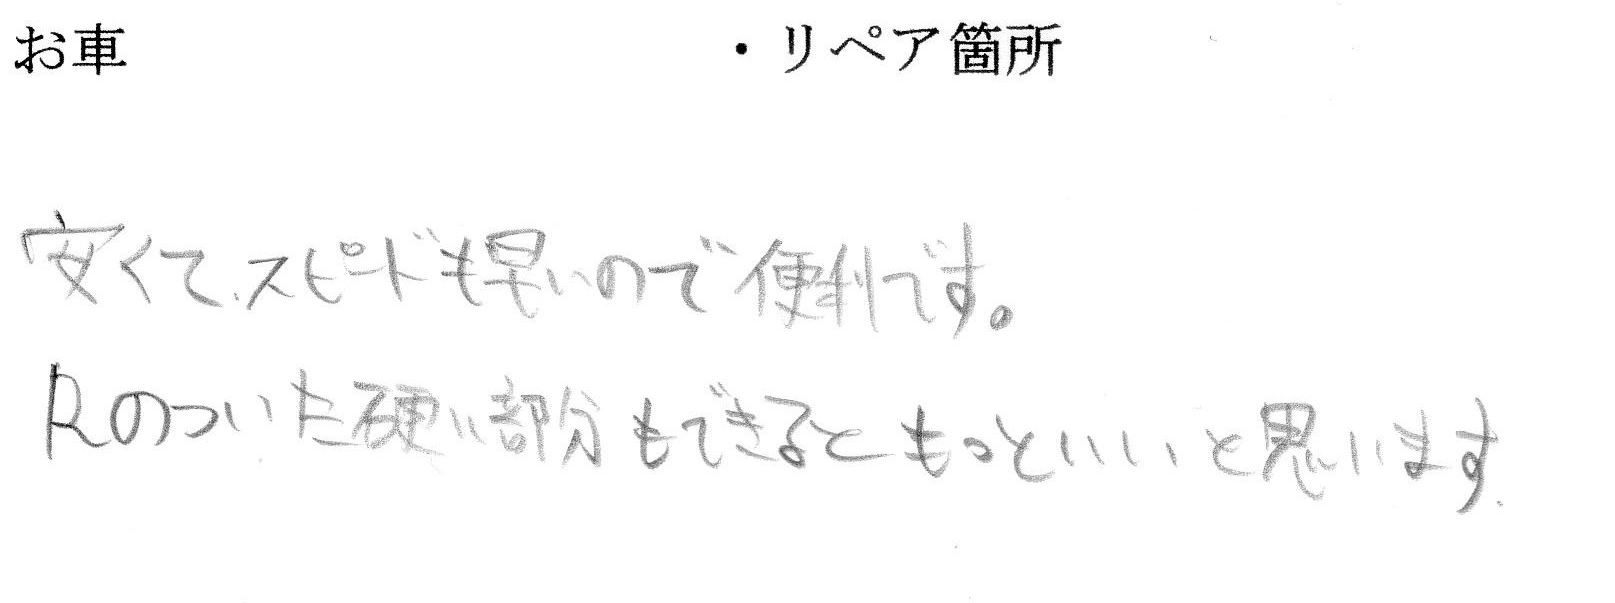 お車 ・リペア箇所
安くて、スピードも早いので便利です。
Rのついた硬い部分もできるともっといいと思います.